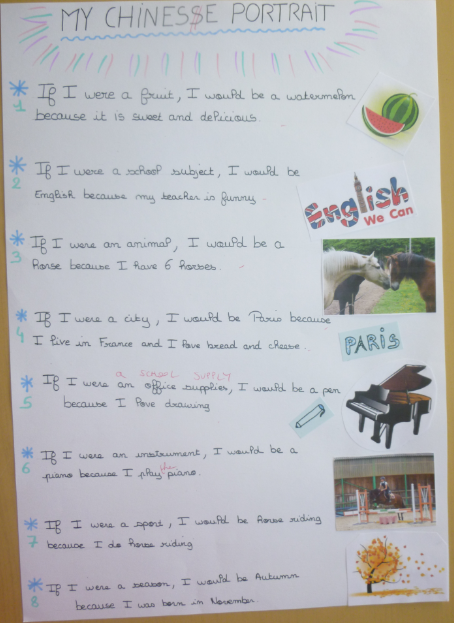 MY CHINESSE PORTRAIT
1 If I were a fruit, I would be a watermelon
because it is sweet and delicious.
2 If I were a school subject, I would be
English because my teacher is funny.
English
We Can
3 If I were an animal, I would be a
horse because I have 6 horses.
4 If I were a city, I would be Paris because
I live in France and I love bread and cheese.
PARIS
a school supply
5 If I were an office supplies, I would be a pen
because I love drawing
6 If I were an instrument, I would be a
piano because I play the piano.
7 If I were a sport, I would be horse riding
because I do horse riding
8 If I were a season, I would be Autumn
because I was born in November.